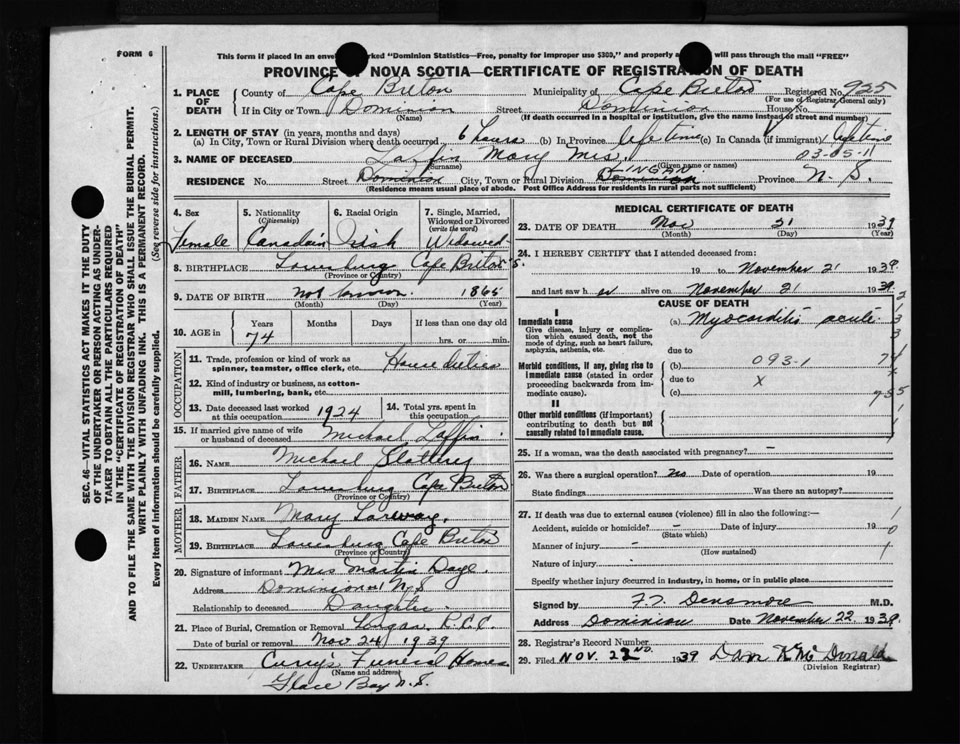 FORM 6
This form if placed in an envelope marked "Dominion Statistics—Free, penalty for improper use $300," and properly will pass through the mail "FREE"
PROVINCE OF NOVA SCOTIA—CERTIFICATE OF REGISTRATION OF DEATH
1. PLACE OF DEATH County of Cape Breton Municipality of Cape Breton Registered No. 925
(For use of Registrar General only)
If in City or Town Dominion Street Dominion House No.
(Name) (If death occurred in a hospital or institution, give the name instead of street and number)
2. LENGTH OF STAY (in years, months and days)
(a) In City, Town or Rural Division where death occurred 6 hours (b) In Province lifetime (c) In Canada (if immigrant) lifetime
3. NAME OF DECEASED Laffin Mary Mrs. 03-05-11
(Surname) (Given name or names)
RESIDENCE No. Street Dominion City, Town or Rural Division Dominion LINGAN Province N.S.
(Residence means usual place of abode. Post Office Address for residents in rural parts not sufficient)
4. Sex Female
5. Nationality (Citizenship) Canadain
6. Racial Origin Irish
7. Single, Married, Widowed or Divorced (write the word) Widowed
8. BIRTHPLACE Louisburg Cape Breton N.S.
(Province or Country)
9. DATE OF BIRTH not known 1865
(Month) (Day) (Year)
10. AGE in Years Months Days If less than one day old
74 hrs. or min.
OCCUPATION
11. Trade, profession or kind of work as spinner, teamster, office clerk, etc. House duties
12. Kind of industry or business, as cotton-mill, lumbering, bank, etc.
13. Date deceased last worked at this occupation 1924
14. Total yrs. spent in this occupation
15. If married give name of wife or husband of deceased Michael Laffin
FATHER
16. NAME Michael Slattery
17. BIRTHPLACE Louisburg Cape Breton
(Province or Country)
MOTHER
18. MAIDEN NAME Mary Larway
19. BIRTHPLACE Louisburg Cape Breton
(Province or Country)
20. Signature of informant Mrs Martin Daye
Address Dominion N S
Relationship to deceased Daughter
21. Place of Burial, Cremation or Removal Lingan R.C.C.
Date of burial or removal Nov 24 1939
22. UNDERTAKER Curry's Funeral Homes
(Name and address)
Glace Bay N.S.
MEDICAL CERTIFICATE OF DEATH
23. DATE OF DEATH Nov 21 1939
(Month) (Day) (Year)
24. I HEREBY CERTIFY that I attended deceased from:
19 to November 21 1939
and last saw her alive on November 21 1939
CAUSE OF DEATH
I
Immediate cause
Give disease, injury or complication which caused death, not the mode of dying, such as heart failure, asphyxia, asthenia, etc.
(a) Myocarditis acute
due to
Morbid conditions, if any, giving rise to immediate cause (stated in order proceeding backwards from immediate cause).
(b) 093-1
due to X
(c)
II
Other morbid conditions (if important) contributing to death but not causally related to immediate cause.
25. If a woman, was the death associated with pregnancy? -
26. Was there a surgical operation? no Date of operation 19
State findings Was there an autopsy?
27. If death was due to external causes (violence) fill in also the following:—
Accident, suicide or homicide? - Date of injury 19
(State which)
Manner of injury -
(How sustained)
Nature of injury -
Specify whether injury occurred in industry, in home, or in public place
Signed by F.T. Densmore M.D.
Address Dominion Date November 22 1939
28. Registrar's Record Number
29. Filed NOV. 22ND. 1939 Dan K McDonald
(Division Registrar)
SEC. 46—VITAL STATISTICS ACT MAKES IT THE DUTY
OF THE UNDERTAKER OR PERSON ACTING AS UNDER-
TAKER TO OBTAIN ALL THE PARTICULARS REQUIRED
IN THE "CERTIFICATE OF REGISTRATION OF DEATH"
AND TO FILE THE SAME WITH THE DIVISION REGISTRAR WHO SHALL ISSUE THE BURIAL PERMIT.
WRITE PLAINLY WITH UNFADING INK. THIS IS A PERMANENT RECORD.
Every item of information should be carefully supplied. (See reverse side for instructions.)